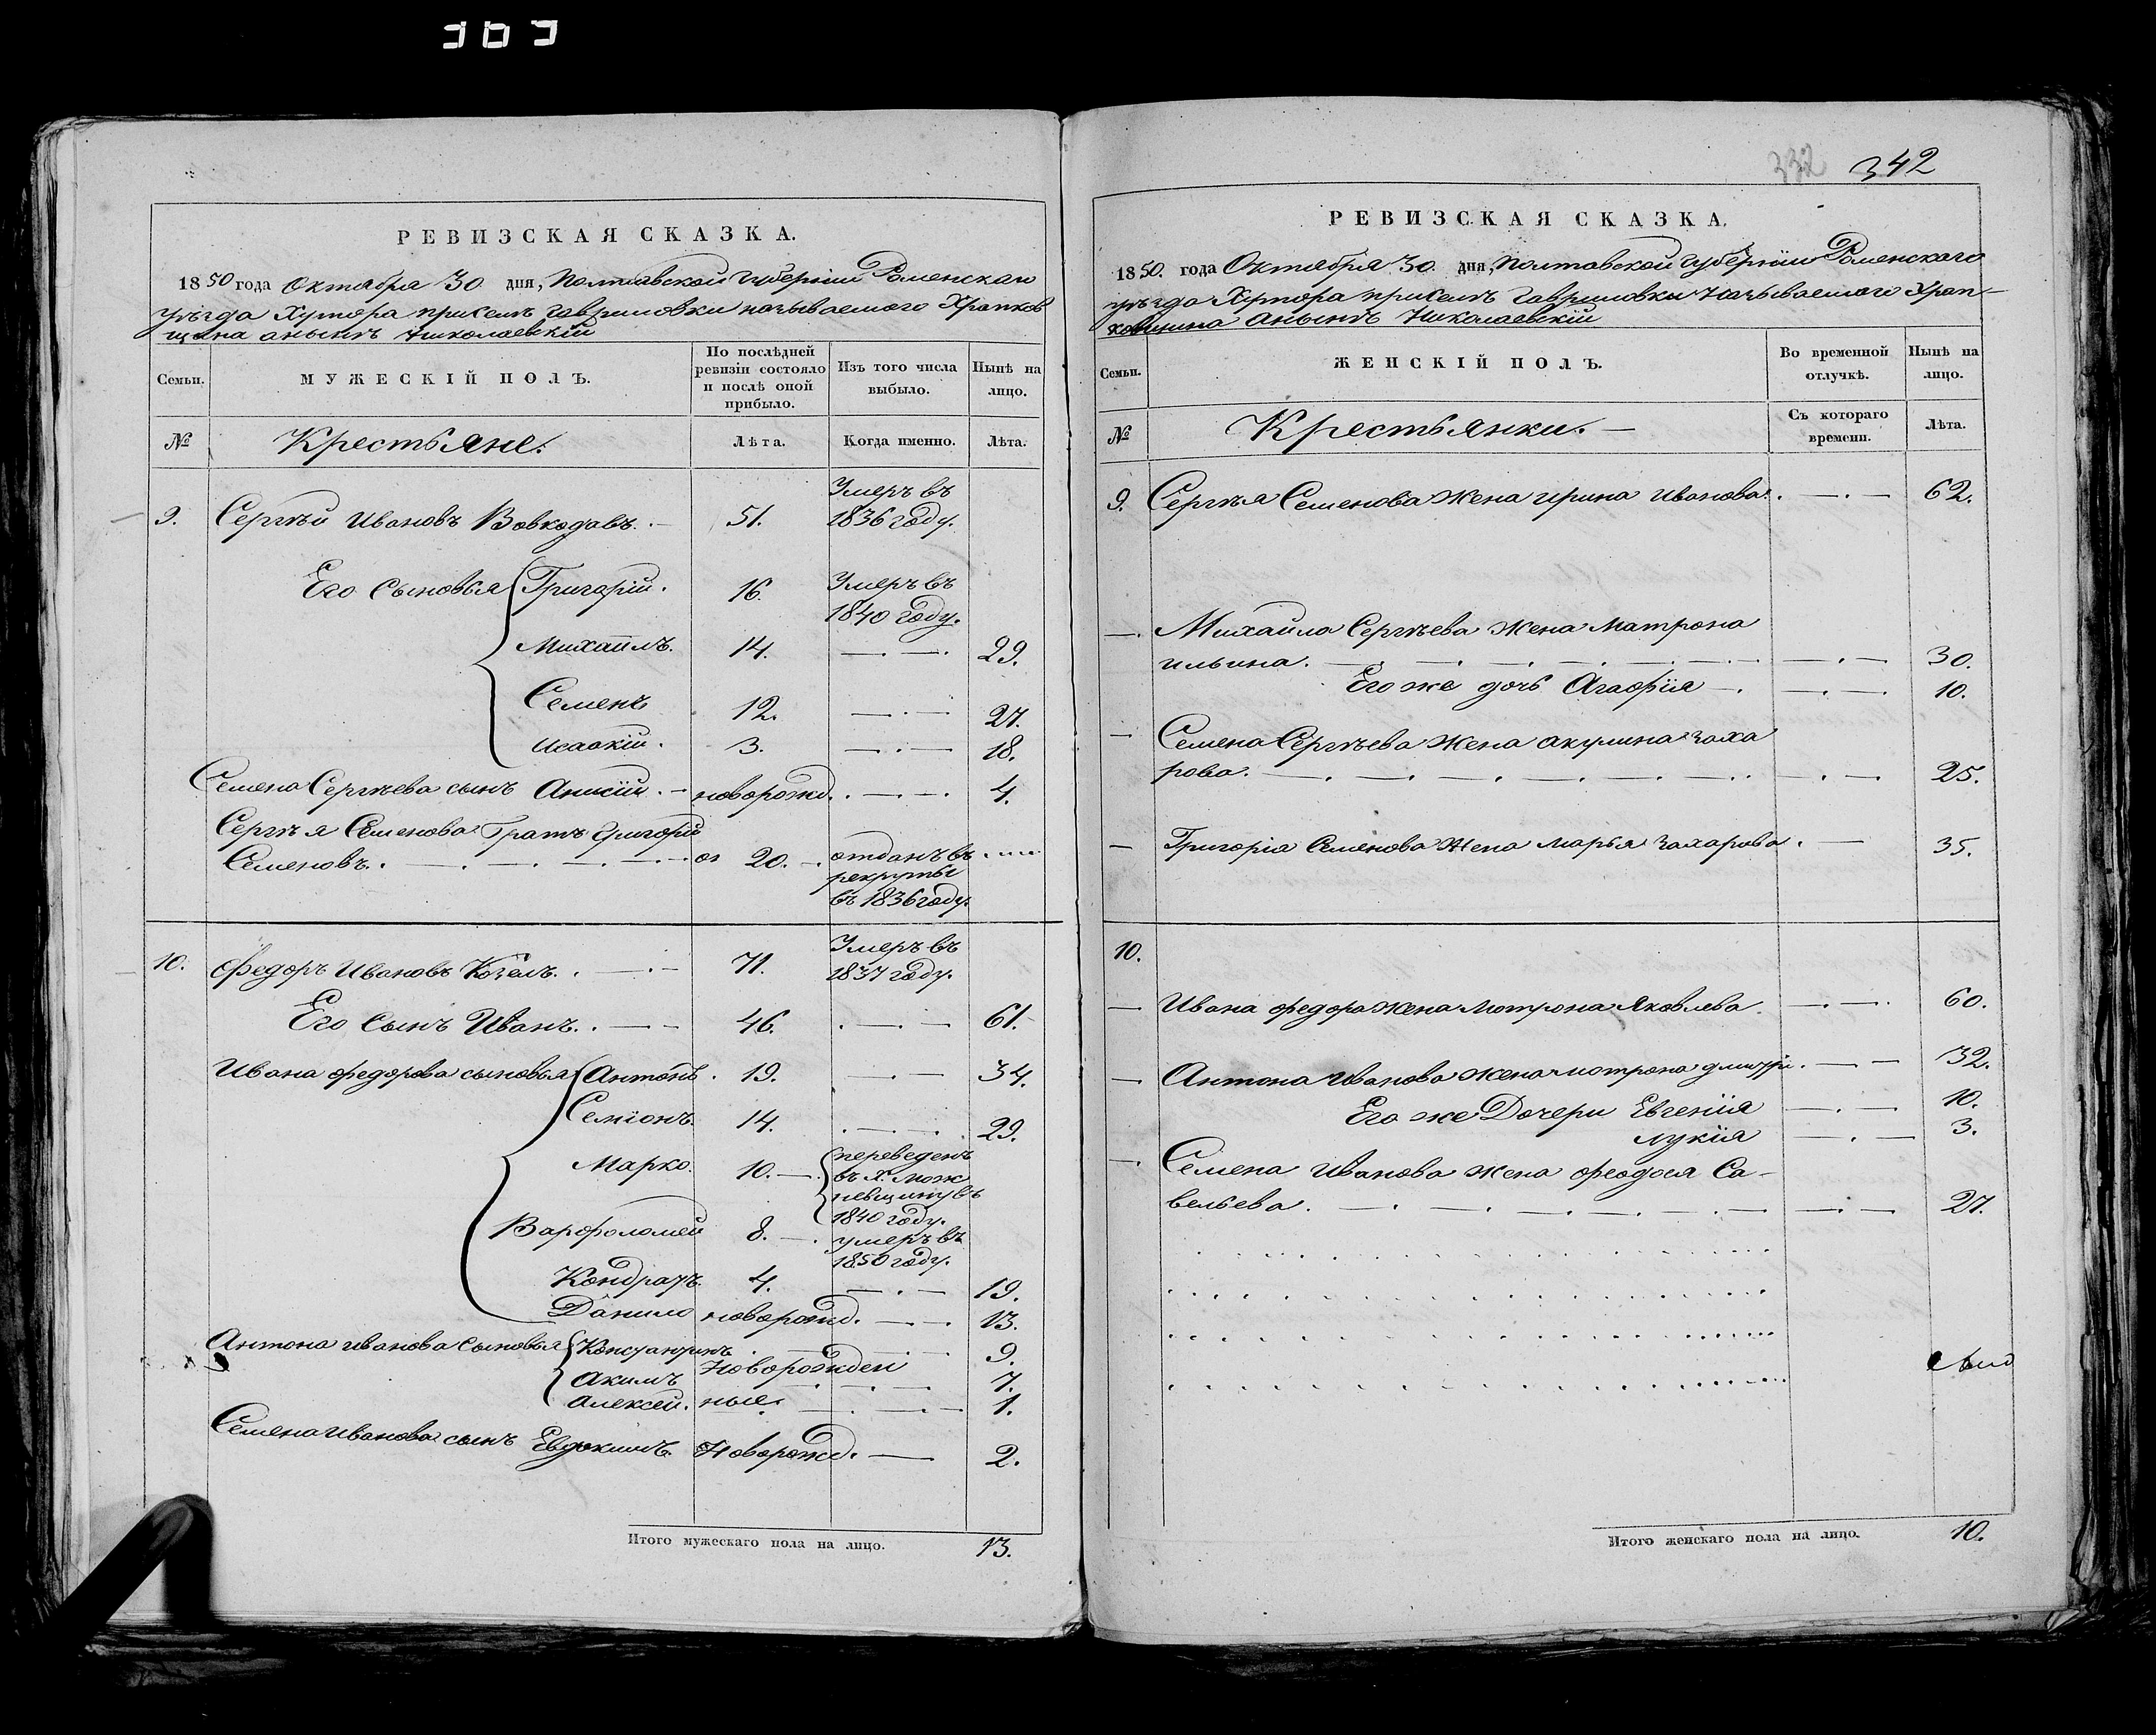 РЕВИЗСКАЯ СКАЗКА.
1850 года Октября 30 дня, Полтавской Губернiи Роменскаго
уѣзда Хутора при селѣ Гавриловки называемого Храпков
щина а нынѣ Николаевскiй
Семьи.
МУЖЕСКІЙ ПОЛЪ.
По послѣдней ревизіи состояло и послѣ оной прибыло.
Изъ того числа выбыло.
Нынѣ на лицо.
№
Крестьяне.
Лѣта.
Когда именно.
Лѣта.
9. Сергѣй Ивановъ Вовкодавъ. 51. Умеръ въ 1836 году.
Его сыновья Григорiй. 16. Умеръ въ 1840 году.
Михаилъ. 14. 29.
Семенъ 12. 27.
Исаакiй. 3. 18.
Семена Сергѣева сынъ Анисiй. новорожд. 4.
Сергѣя Семенова братъ Григорiй
Семеновъ. 20. отданъ въ рекруты въ 1836 году.
10. Федоръ Ивановъ Козелъ. 71. Умеръ въ 1837 году.
Его сынъ Иванъ. 46. 61.
Ивана федорова сыновья Антонъ. 19. 34.
Семiонъ. 14. 29.
Марко. 10. переведенъ въ Х. 1840 году.
Варфоломей 8. умеръ въ 1850 году.
Кондратъ. 4. 19.
Данило новорожд. 13.
Антона иванова сыновья Константинъ 9.
Акимъ Новорожден 7.
Алексей. ные. 1.
Семена иванова сынъ Евдокимъ. Новорожд. 2.
Итого мужескаго пола на лицо. 13.
332 342
РЕВИЗСКАЯ СКАЗКА.
1850. года Октября 30. дня, Полтавской Губернiи Роменскаго
уѣзда Хутора при селѣ Гавриловки Называемого Храп-
ковщина а нынѣ Николаевскiй
Семьи.
ЖЕНСКІЙ ПОЛЪ.
Во временной отлучкѣ.
Нынѣ на лицо.
№
Крестьянки.
Съ котораго времени.
Лѣта.
9. Сергѣя Семенова Жена Ирина Иванова. 62.
Михаила Сергѣева Жена Матрона
ильина. 30.
Его же дочь Агафiя 10.
Семена Сергѣева Жена акулина заха
рова. 25.
Григорiя Семенова Жена Марья Захарова. 35.
10.
Ивана федора Жена Мотрона Яковлева. 60.
Антона Иванова Жена мотрона дмитрi. 32.
Его же Дочери Евгенiя 10.
Лукiя 3.
Семена Иванова жена феодося Са-
вельева. 27.
Итого женскаго пола на лицо. 10.